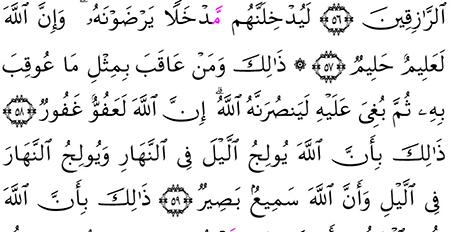 ٱلرَّٰزِقِينَ ٥٦ لَيُدْخِلَنَّهُم مَّدْخَلًا يَرْضَوْنَهُۥ ۗ وَإِنَّ ٱللَّهَ
لَعَلِيمٌ حَلِيمٌ ٥٧ ۞ ذَٰلِكَ وَمَنْ عَاقَبَ بِمِثْلِ مَا عُوقِبَ
بِهِۦ ثُمَّ بُغِىَ عَلَيْهِ لَيَنصُرَنَّهُ ٱللَّهُ ۗ إِنَّ ٱللَّهَ لَعَفُوٌّ غَفُورٌ ٥٨
ذَٰلِكَ بِأَنَّ ٱللَّهَ يُولِجُ ٱلَّيْلَ فِى ٱلنَّهَارِ وَيُولِجُ ٱلنَّهَارَ
فِى ٱلَّيْلِ وَأَنَّ ٱللَّهَ سَمِيعٌۢ بَصِيرٌ ٥٩ ذَٰلِكَ بِأَنَّ ٱللَّهَ